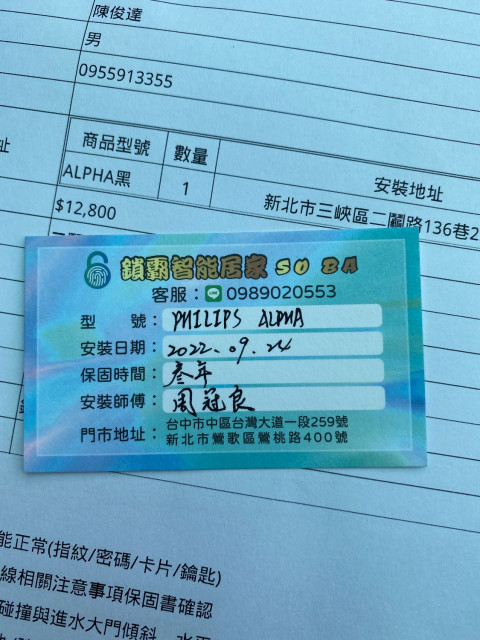 陳俊達
男
0955913355
址
商品型號 數量 安裝地址
ALPHA黑 1 新北市三峽區二鬮路136巷2
$12,800
鎖霸智能居家 SO BA
客服：LINE 0989020553
型 號：PHILIPS ALPHA
安裝日期：2022.09.24
保固時間：叁年
安裝師傅：周冠良
門市地址：台中市中區台灣大道一段259號
新北市鶯歌區鶯桃路400號
能正常(指紋/密碼/卡片/鑰匙)
線相關注意事項保固書確認
碰撞與進水大門傾斜